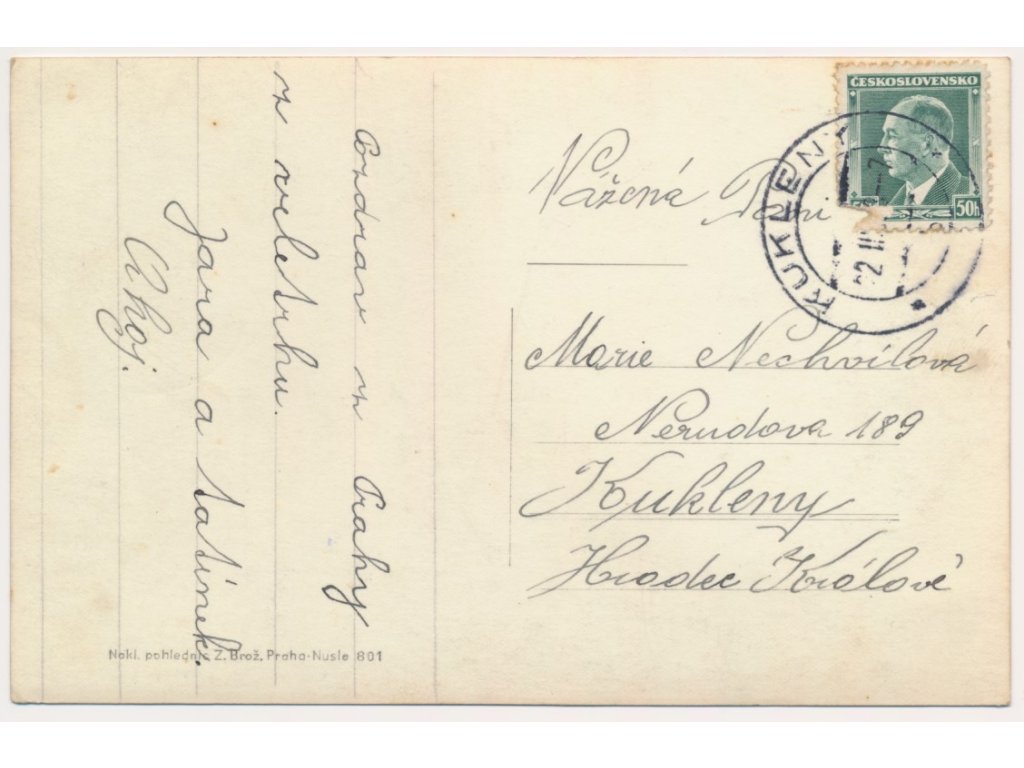 Pozdrav z Prahy
z veletrhu.
Jara a tatínek.
Ahoj.
Nakl. pohlednic Z. Brož, Praha-Nusle 801
ČESKOSLOVENSKO
50h
KUKLENY
Vážená Paní
Marie Nechvílová
Nerudova 189
Kukleny
Hradec Králové